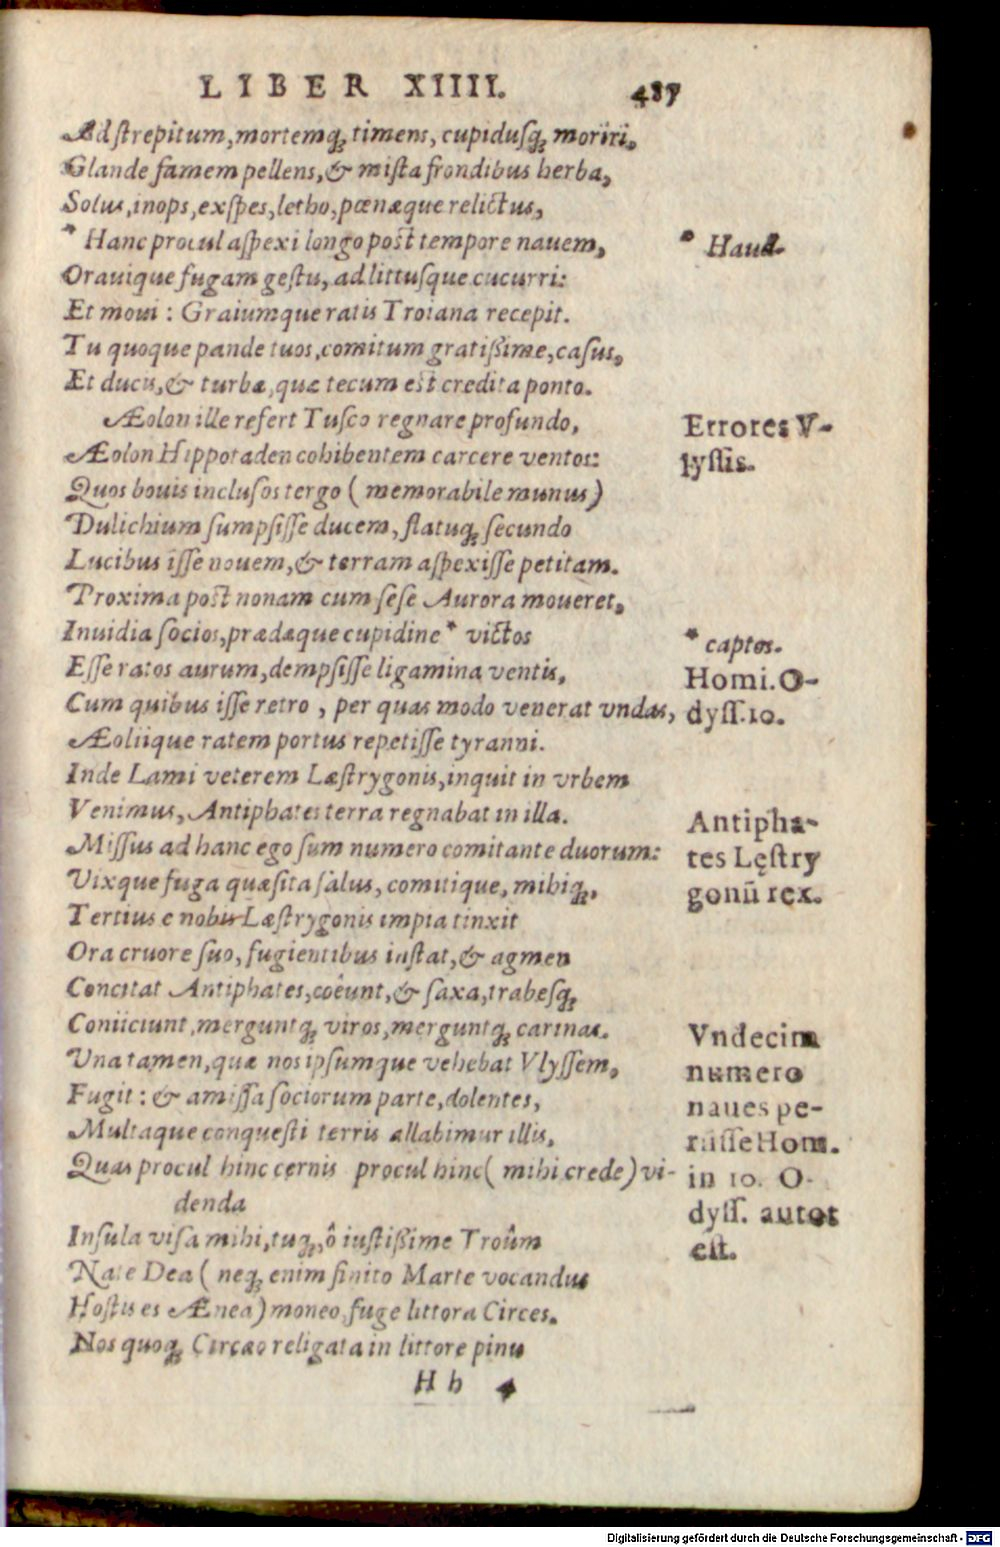 LIBER XIIII. 487
Ad strepitum, mortemq; timens, cupidusq; moriri,
Glande famem pellens, & mista frondibus herba,
Solus, inops, exspes, letho, pœnæque relictus,
* Hanc procul aspexi longo post tempore nauem, * Haud.
Orauique fugam gestu, ad littusque cucurri:
Et moui: Graiumque ratis Troiana recepit.
Tu quoque pande tuos, comitum gratißime, casus,
Et ducis, & turbæ, quæ tecum est credita ponto.
Æolon ille refert Tusco regnare profundo, Errores V-
Æolon Hippotaden cohibentem carcere ventos: lyssis.
Quos bouis inclusos tergo (memorabile munus)
Dulichium sumpsisse ducem, flatuq; secundo
Lucibus isse nouem, & terram aspexisse petitam.
Proxima post nonam cum sese Aurora moueret,
Inuidia socios, prædæque cupidine * victos * captos.
Esse ratos aurum, dempsisse ligamina ventis, Homi. O-
Cum quibus isse retro, per quas modo venerat vndas, dyss. 10.
Æoliique ratem portus repetisse tyranni.
Inde Lami veterem Læstrygonis, inquit in vrbem
Venimus, Antiphates terra regnabat in illa. Antipha-
Missus ad hanc ego sum numero comitante duorum: tes Lęstry
Vixque fuga quæsita salus, comitique, mihiq;, gonū rex.
Tertius e nobis Læstrygonis impia tinxit
Ora cruore suo, fugientibus instat, & agmen
Concitat Antiphates, coëunt, & saxa, trabesq;
Coniiciunt, merguntq; viros, merguntq; carinas. Vndecim
Vna tamen, quæ nos ipsumque vehebat Vlyssem, numero
Fugit: & amissa sociorum parte, dolentes, naues pe-
Multaque conquesti terris allabimur illis, riisse Hom.
Quas procul hinc cernis procul hinc (mihi crede) vi- in 10. O-
denda dyss. autor
Insula visa mihi, tuq;, ô iustißime Troûm est.
Nate Dea (neq; enim finito Marte vocandus
Hostis es Ænea) moneo, fuge littora Circes.
Nos quoq; Circæo religata in littore pinu
H h 4
Digitalisierung gefördert durch die Deutsche Forschungsgemeinschaft - DFG